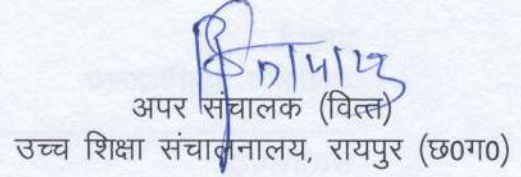 अपर संचालक (वित्त)
उच्च शिक्षा संचालनालय, रायपुर (छ0ग0)